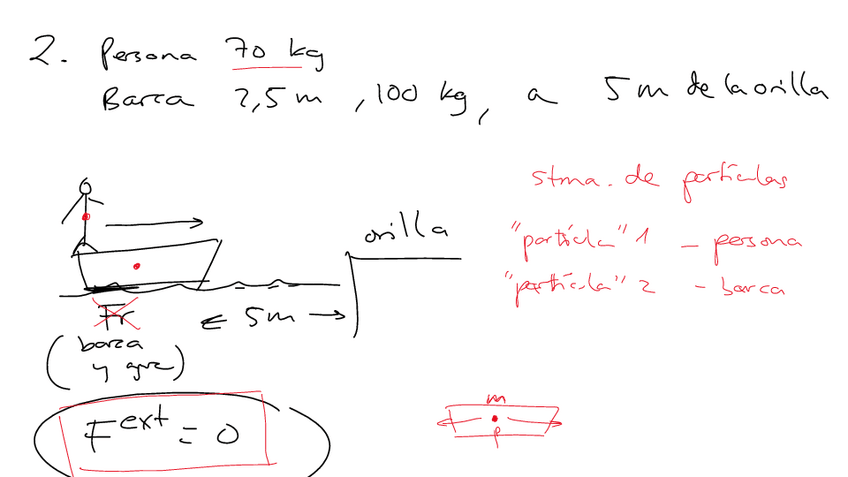 2. Persona 70 kg
Barca 2,5 m , 100 kg, a 5 m de la orilla
stma. de partículas
orilla
"partícula" 1 - persona
"partícula" 2 - barca
Fr
5m
(barca
y agua)
F ext = 0
m
P